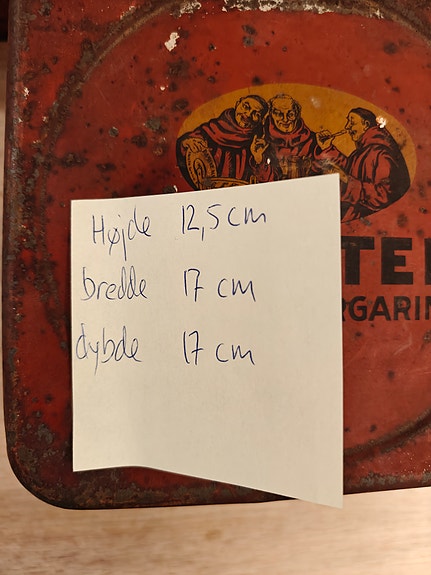 Højde 12,5 cm
bredde 17 cm
dybde 17 cm
TE
RGARIN